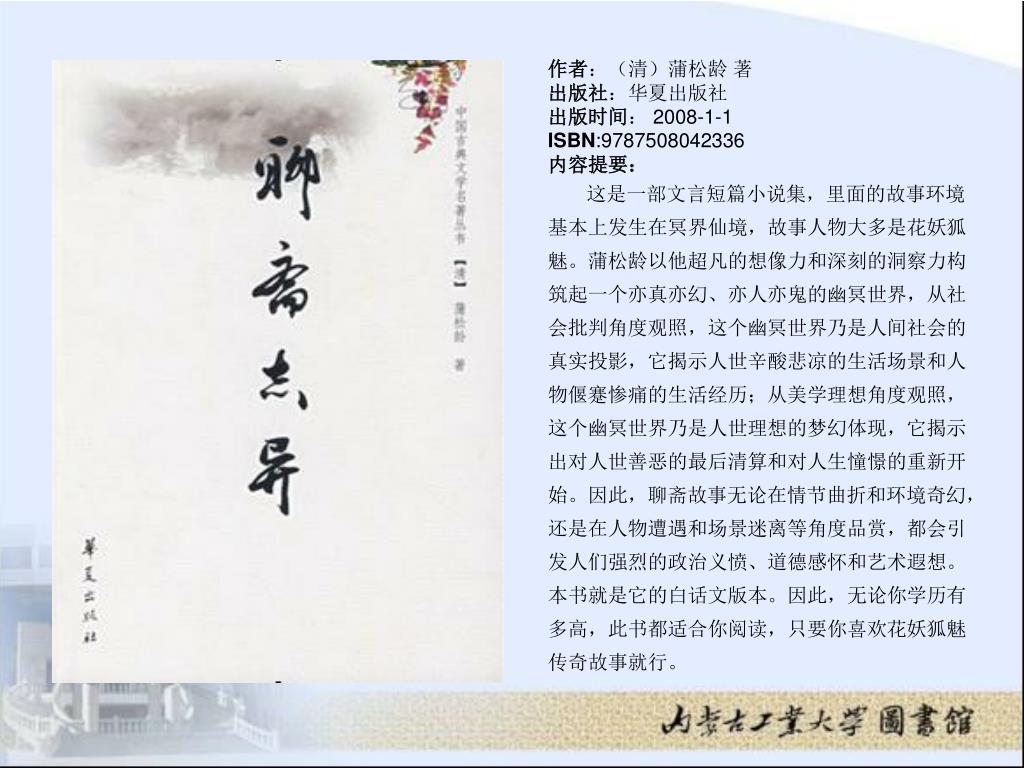 聊斋志异
中国古典文学名著丛书 【清】 蒲松龄 著
华夏出版社
作者：（清）蒲松龄 著
出版社：华夏出版社
出版时间： 2008-1-1
ISBN:9787508042336
内容提要：
这是一部文言短篇小说集，里面的故事环境
基本上发生在冥界仙境，故事人物大多是花妖狐
魅。蒲松龄以他超凡的想像力和深刻的洞察力构
筑起一个亦真亦幻、亦人亦鬼的幽冥世界，从社
会批判角度观照，这个幽冥世界乃是人间社会的
真实投影，它揭示人世辛酸悲凉的生活场景和人
物偃蹇惨痛的生活经历；从美学理想角度观照，
这个幽冥世界乃是人世理想的梦幻体现，它揭示
出对人世善恶的最后清算和对人生憧憬的重新开
始。因此，聊斋故事无论在情节曲折和环境奇幻，
还是在人物遭遇和场景迷离等角度品赏，都会引
发人们强烈的政治义愤、道德感怀和艺术遐想。
本书就是它的白话文版本。因此，无论你学历有
多高，此书都适合你阅读，只要你喜欢花妖狐魅
传奇故事就行。
内蒙古工业大学 圖書館